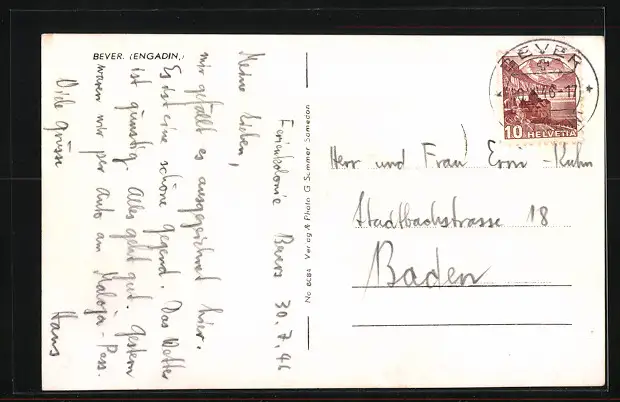 BEVER. (ENGADIN.)
Ferienkolonie Bevers 30.7.46
Meine Lieben,
mir gefällt es ausgezeichnet hier.
Es ist eine schöne Gegend. Das Wetter
ist günstig. Alles geht gut. Gestern
waren wir per Auto am Maloja-Pass.
Viele Grüsse
Hans
No 6084 Verlag & Photo G Sommer Samedan
BEVER
10 HELVETIA
Herr und Frau Erni-Kuhn
Stadtbachstrasse 18
Baden